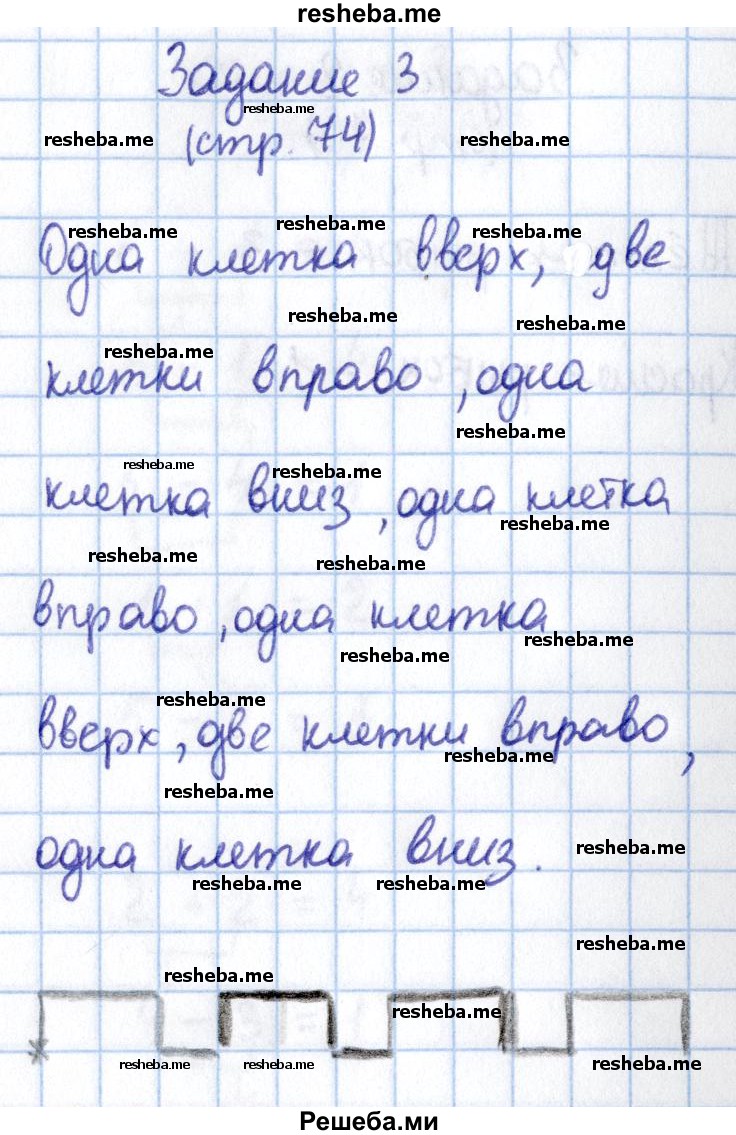 resheba.me
Задание 3
resheba.me
resheba.me (стр. 74) resheba.me
resheba.me resheba.me resheba.me
Одна клетка вверх, две
resheba.me resheba.me
resheba.me
клетки вправо, одна
resheba.me
resheba.me resheba.me
клетка вниз, одна клетка
resheba.me
resheba.me resheba.me
вправо, одна клетка
resheba.me
resheba.me
resheba.me
вверх, две клетки вправо,
resheba.me
resheba.me
одна клетка вниз.
resheba.me
resheba.me resheba.me
resheba.me
resheba.me
resheba.me
resheba.me resheba.me resheba.me
Решеба.ми